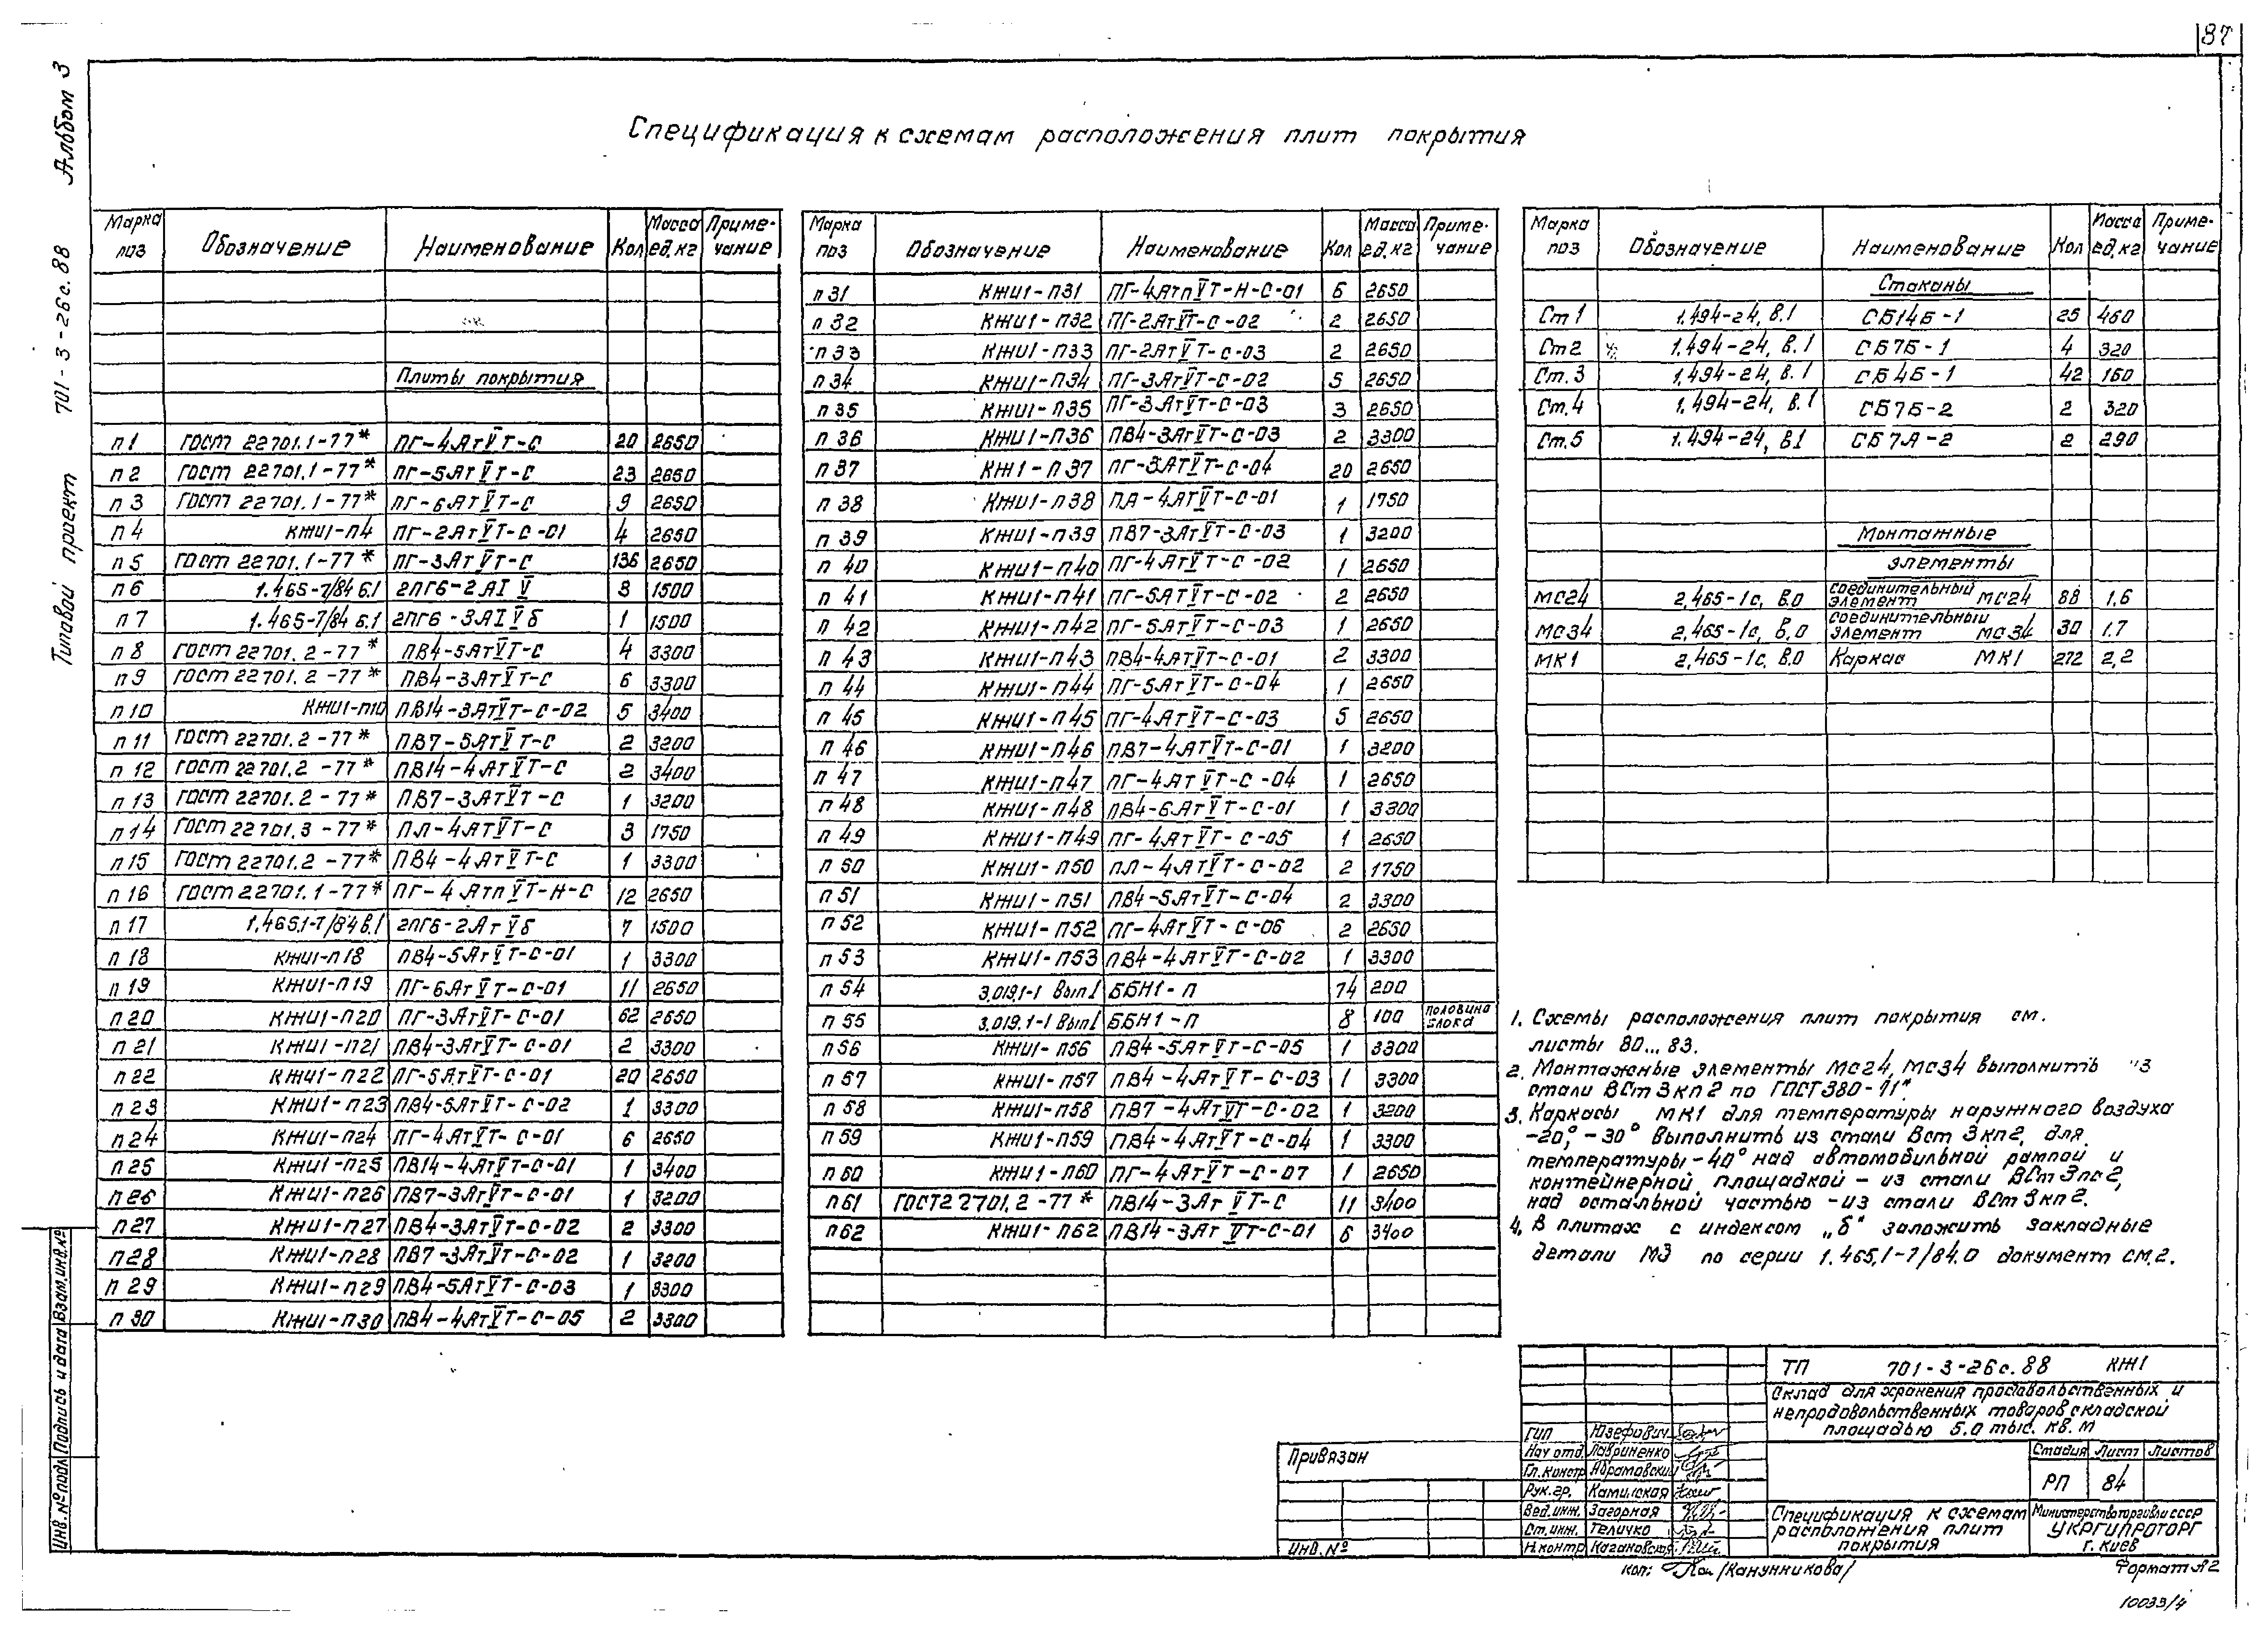 87
Альбом 3
701-3-26с.88
Типовой проект
Спецификация к схемам расположения плит покрытия
Марка поз | Обозначение | Наименование | Кол | Масса ед.кг | Приме-чание
Плиты покрытия
п1 ГОСТ 22701.1-77* ПГ-4АтⅤТ-С 20 2650
п2 ГОСТ 22701.1-77* ПГ-5АтⅤТ-С 23 2650
п3 ГОСТ 22701.1-77* ПГ-6АтⅤТ-С 9 2650
п4 КЖИ1-П4 ПГ-2АтⅤТ-С-01 4 2650
п5 ГОСТ 22701.1-77* ПГ-3АтⅤТ-С 136 2650
п6 1.465-7/84 в.1 2ПГ6-2АIⅤ 3 1500
п7 1.465-7/84 в.1 2ПГ6-3АIⅤб 1 1500
п8 ГОСТ 22701.2-77* ПВ4-5АтⅤТ-С 4 3300
п9 ГОСТ 22701.2-77* ПВ4-3АтⅤТ-С 6 3300
п10 КЖИ1-п10 ПВ14-3АтⅤТ-С-02 5 3400
п11 ГОСТ 22701.2-77* ПВ7-5АтⅤТ-С 2 3200
п12 ГОСТ 22701.2-77* ПВ14-4АтⅤТ-С 2 3400
п13 ГОСТ 22701.2-77* ПВ7-3АтⅤТ-С 1 3200
п14 ГОСТ 22701.3-77* ПЛ-4АтⅤТ-С 3 1750
п15 ГОСТ 22701.2-77* ПВ4-4АтⅤТ-С 1 3300
п16 ГОСТ 22701.1-77* ПГ-4АтпⅤТ-Н-С 12 2650
п17 1.465.1-7/84 в.1 2ПГ6-2АтⅤб 7 1500
п18 КЖИ1-п18 ПВ4-5АтⅤТ-С-01 1 3300
п19 КЖИ1-П19 ПГ-6АтⅤТ-С-01 11 2650
п20 КЖИ1-П20 ПГ-3АтⅤТ-С-01 62 2650
п21 КЖИ1-П21 ПВ4-3АтⅤТ-С-01 2 3300
п22 КЖИ1-П22 ПГ-5АтⅤТ-С-01 20 2650
п23 КЖИ1-П23 ПВ4-5АтⅤТ-С-02 1 3300
п24 КЖИ1-П24 ПГ-4АтⅤТ-С-01 6 2650
п25 КЖИ1-П25 ПВ14-4АтⅤТ-С-01 1 3400
п26 КЖИ1-П26 ПВ7-3АтⅤТ-С-01 1 3200
п27 КЖИ1-П27 ПВ4-3АтⅤТ-С-02 2 3300
п28 КЖИ1-П28 ПВ7-3АтⅤТ-С-02 1 3200
п29 КЖИ1-П29 ПВ4-5АтⅤТ-С-03 1 3300
п30 КЖИ1-П30 ПВ4-4АтⅤТ-С-05 2 3300
Марка поз | Обозначение | Наименование | Кол | Масса ед.кг | Приме-чание
п31 КЖИ1-П31 ПГ-4АтпⅤТ-Н-С-01 6 2650
п32 КЖИ1-П32 ПГ-2АтⅤТ-С-02 2 2650
п33 КЖИ1-П33 ПГ-2АтⅤТ-С-03 2 2650
п34 КЖИ1-П34 ПГ-3АтⅤТ-С-02 5 2650
п35 КЖИ1-П35 ПГ-3АтⅤТ-С-03 3 2650
п36 КЖИ1-П36 ПВ4-3АтⅤТ-С-03 2 3300
п37 КЖ1-П37 ПГ-3АтⅤТ-С-04 20 2650
п38 КЖИ1-П38 ПЛ-4АтⅤТ-С-01 1 1750
п39 КЖИ1-П39 ПВ7-3АтⅤТ-С-03 1 3200
п40 КЖИ1-П40 ПГ-4АтⅤТ-С-02 1 2650
п41 КЖИ1-П41 ПГ-5АтⅤТ-С-02 2 2650
п42 КЖИ1-П42 ПГ-5АтⅤТ-С-03 1 2650
п43 КЖИ1-П43 ПВ4-4АтⅤТ-С-01 2 3300
п44 КЖИ1-П44 ПГ-5АтⅤТ-С-04 1 2650
п45 КЖИ1-П45 ПГ-4АтⅤТ-С-03 5 2650
п46 КЖИ1-П46 ПВ7-4АтⅤТ-С-01 1 3200
п47 КЖИ1-П47 ПГ-4АтⅤТ-С-04 1 2650
п48 КЖИ1-П48 ПВ4-6АтⅤТ-С-01 1 3300
п49 КЖИ1-П49 ПГ-4АтⅤТ-С-05 1 2650
п50 КЖИ1-П50 ПЛ-4АтⅤТ-С-02 2 1750
п51 КЖИ1-П51 ПВ4-5АтⅤТ-С-04 2 3300
п52 КЖИ1-П52 ПГ-4АтⅤТ-С-06 2 2650
п53 КЖИ1-П53 ПВ4-4АтⅤТ-С-02 1 3300
п54 3.019.1-1 Вып I ББН1-П 74 200
п55 3.019.1-1 Вып I ББН1-П 8 100 половина блока
п56 КЖИ1-П56 ПВ4-5АтⅤТ-С-05 1 3300
п57 КЖИ1-П57 ПВ4-4АтⅤТ-С-03 1 3300
п58 КЖИ1-П58 ПВ7-4АтⅤТ-С-02 1 3200
п59 КЖИ1-П59 ПВ4-4АтⅤТ-С-04 1 3300
п60 КЖИ1-П60 ПГ-4АтⅤТ-С-07 1 2650
п61 ГОСТ22701.2-77* ПВ14-3АтⅤТ-С 11 3400
п62 КЖИ1-П62 ПВ14-3АтⅤТ-С-01 6 3400
Марка поз | Обозначение | Наименование | Кол | Масса ед.кг | Приме-чание
Стаканы
Ст1 1.494-24, в.1 СБ14Б-1 25 460
Ст2 1.494-24, в.1 СБ7Б-1 4 320
Ст.3 1.494-24, в.1 СБ4Б-1 42 160
Ст.4 1.494-24, в.1 СБ7Б-2 2 320
Ст.5 1.494-24, в.1 СБ7А-2 2 290
Монтажные
элементы
МС24 2.465-1с, в.0 Соединительный элемент МС24 88 1.6
МС34 2.465-1с, в.0 Соединительный элемент МС34 30 1.7
МК1 2.465-1с, в.0 Каркас МК1 272 2,2
1. Схемы расположения плит покрытия см.
листы 80...83.
2. Монтажные элементы МС24, МС34 выполнить из
стали ВСт3кп2 по ГОСТ380-71*.
3. Каркасы МК1 для температуры наружного воздуха
-20°, -30° выполнить из стали Вст 3кп2, для
температуры -40° над автомобильной рампой и
контейнерной площадкой - из стали ВСт3пс2,
над остальной частью - из стали ВСт3кп2.
4. В плитах с индексом „б" заложить закладные
детали МД по серии 1.465.1-7/84.0 документ см.2.
ТП 701-3-26с.88 КЖ1
Склад для хранения продовольственных и
непродовольственных товаров складской
площадью 5.0 тыс. кв. м
Стадия Лист Листов
РП 84
Спецификация к схемам
расположения плит
покрытия
Министерство торговли СССР
УКРГИПРОТОРГ
г. Киев
ГИП Юзефович
Нач отд Лавриненко
Гл.констр Абрамовский
Рук.гр. Каминская
Вед.инж. Загорная
Ст.инж. Теличко
Н.контр Кагановская
Привязан
ИНВ.№
Инв.№подл Подпись и дата Взам.инв.№
коп: /Канунникова/
Формат А2
10033/4